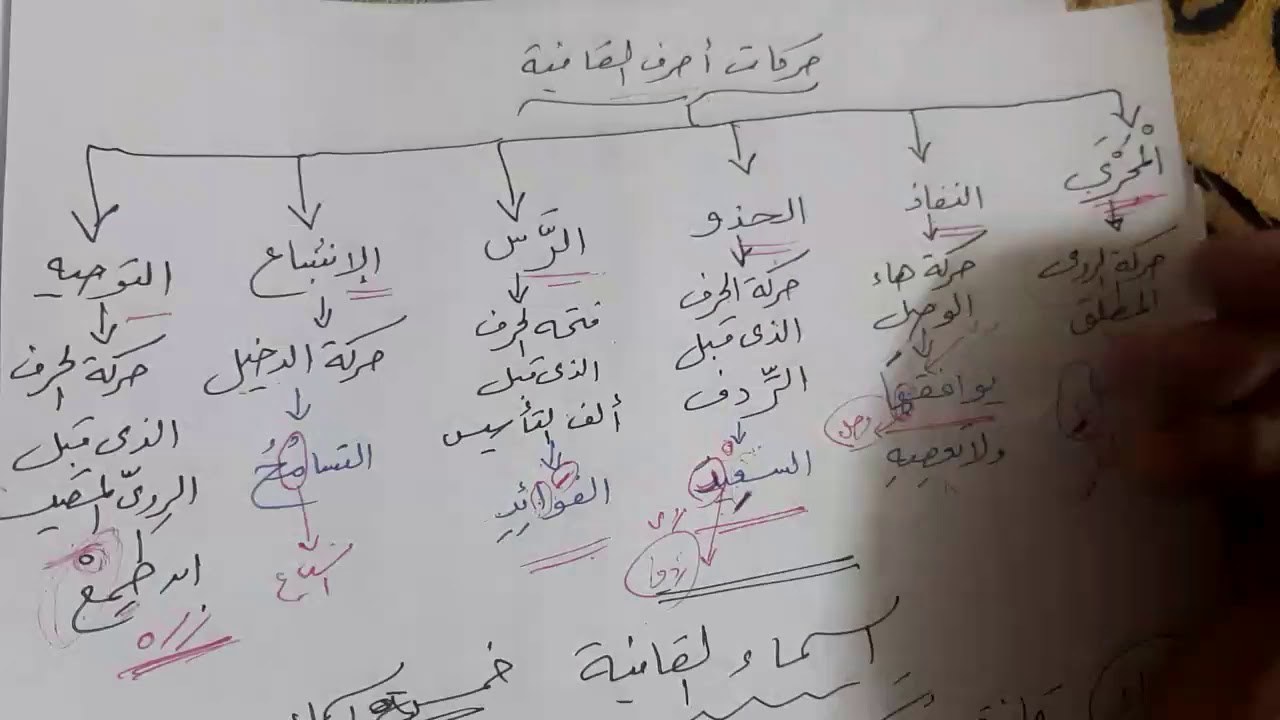 حركات أحرف القافية
المَجْرَى
حركة الروى
المطلق
النفاذ
حركة هاء
الوصل
يوافقها
وصل
ولا تعصيه
الحذو
حركة الحرف
الذى قبل
الرِّدف
السعيد
ردف
الرَّس
فتحه الحرف
الذى قبل
ألف التأسيس
الفوائِدِ
الإشباع
حركة الدخيل
التسامحُ
إشباع
التوجيه
حركة الحرف
الذى قبل
الروىّ المقيد
/٥//
اسماء القافية خمسة